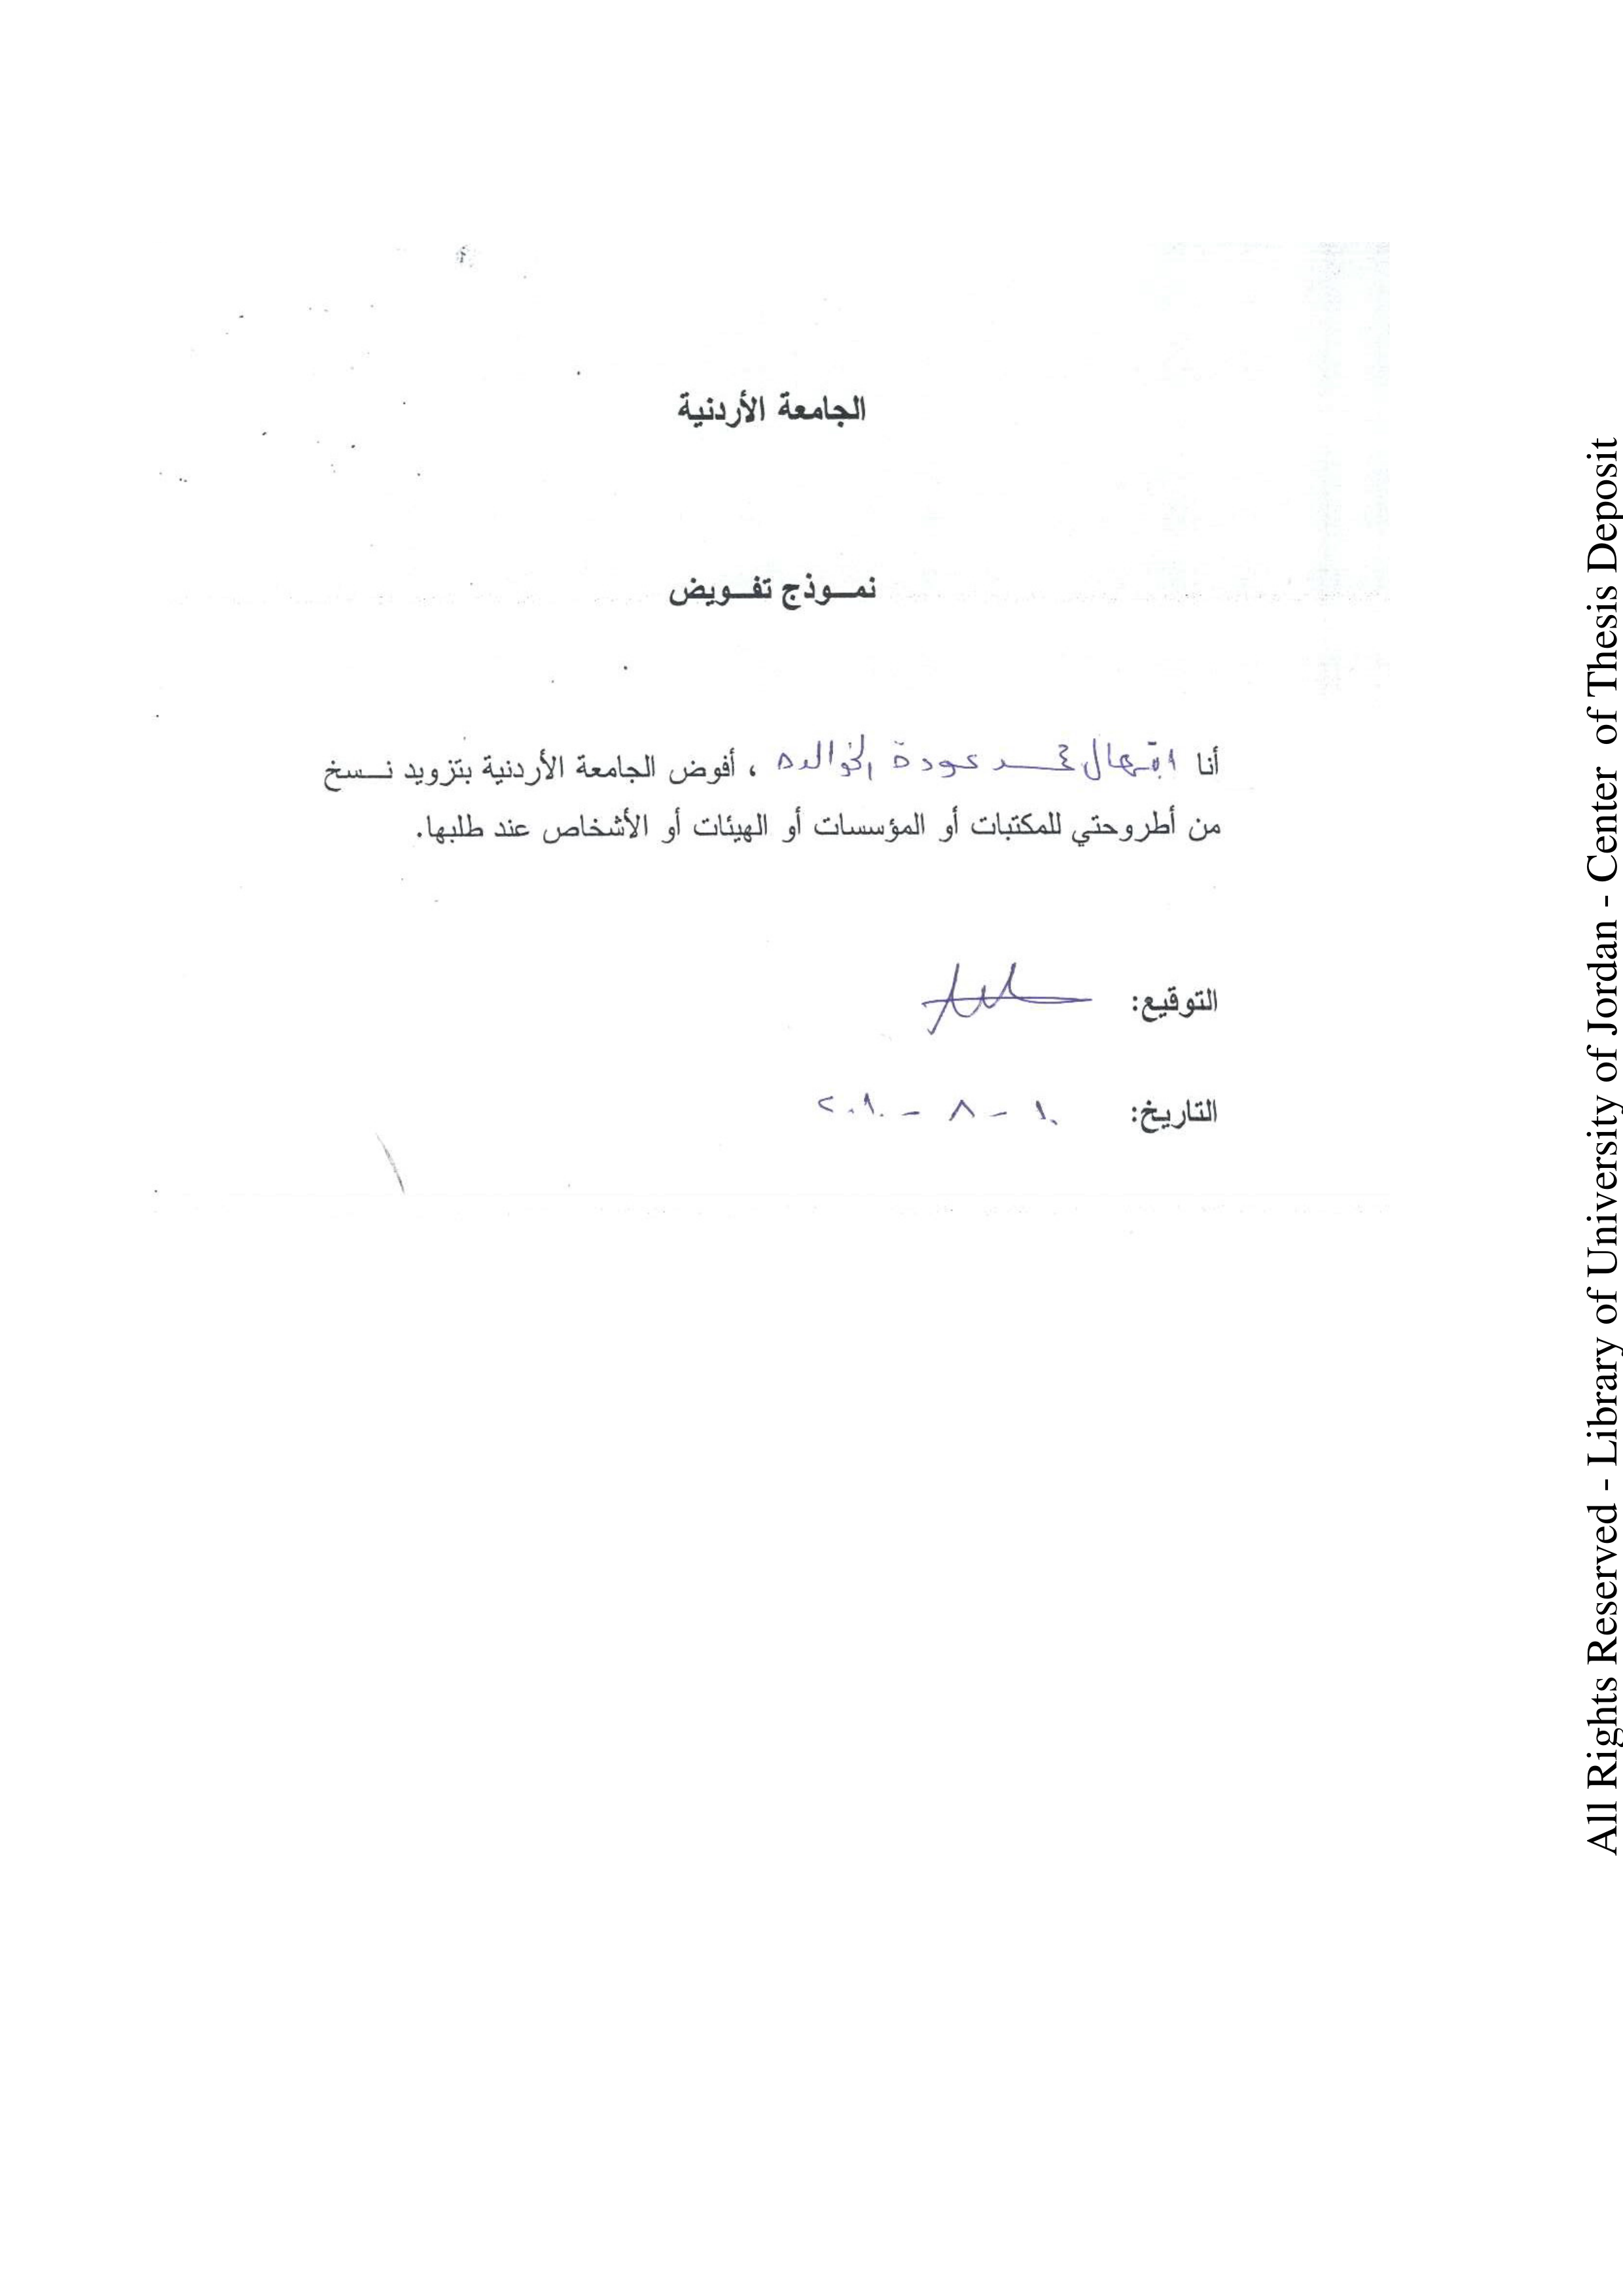 الجامعة الأردنية
نموذج تفويض
أنا ابتهال محمد عودة الخوالده ، أفوض الجامعة الأردنية بتزويد نسخ
من أطروحتي للمكتبات أو المؤسسات أو الهيئات أو الأشخاص عند طلبها.
التوقيع:
التاريخ: ١٠ - ٨ - ٢٠١٠
All Rights Reserved - Library of University of Jordan - Center of Thesis Deposit